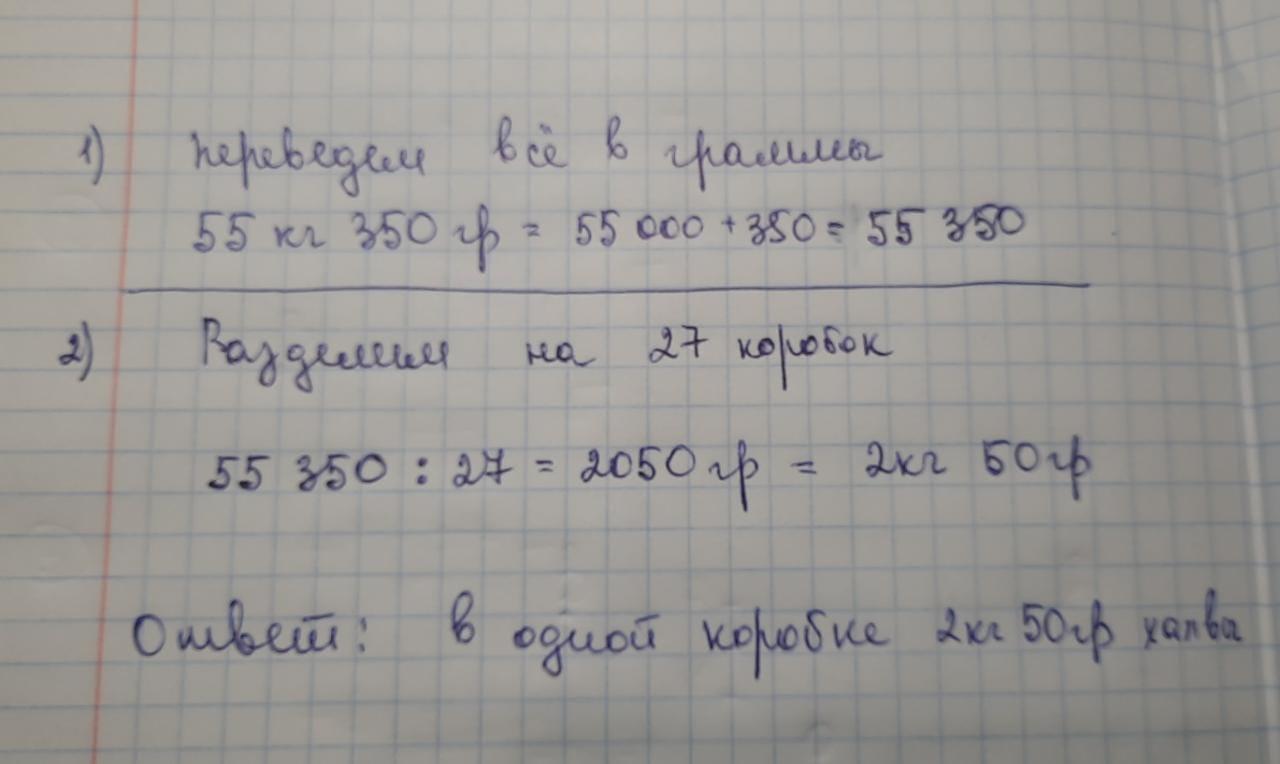 1) переведем всё в граммы
55 кг 350 гр = 55 000 + 350 = 55 350
2) Разделим на 27 коробок
55 350 : 27 = 2050 гр = 2кг 50гр
Ответ: в одной коробке 2кг 50гр халвы